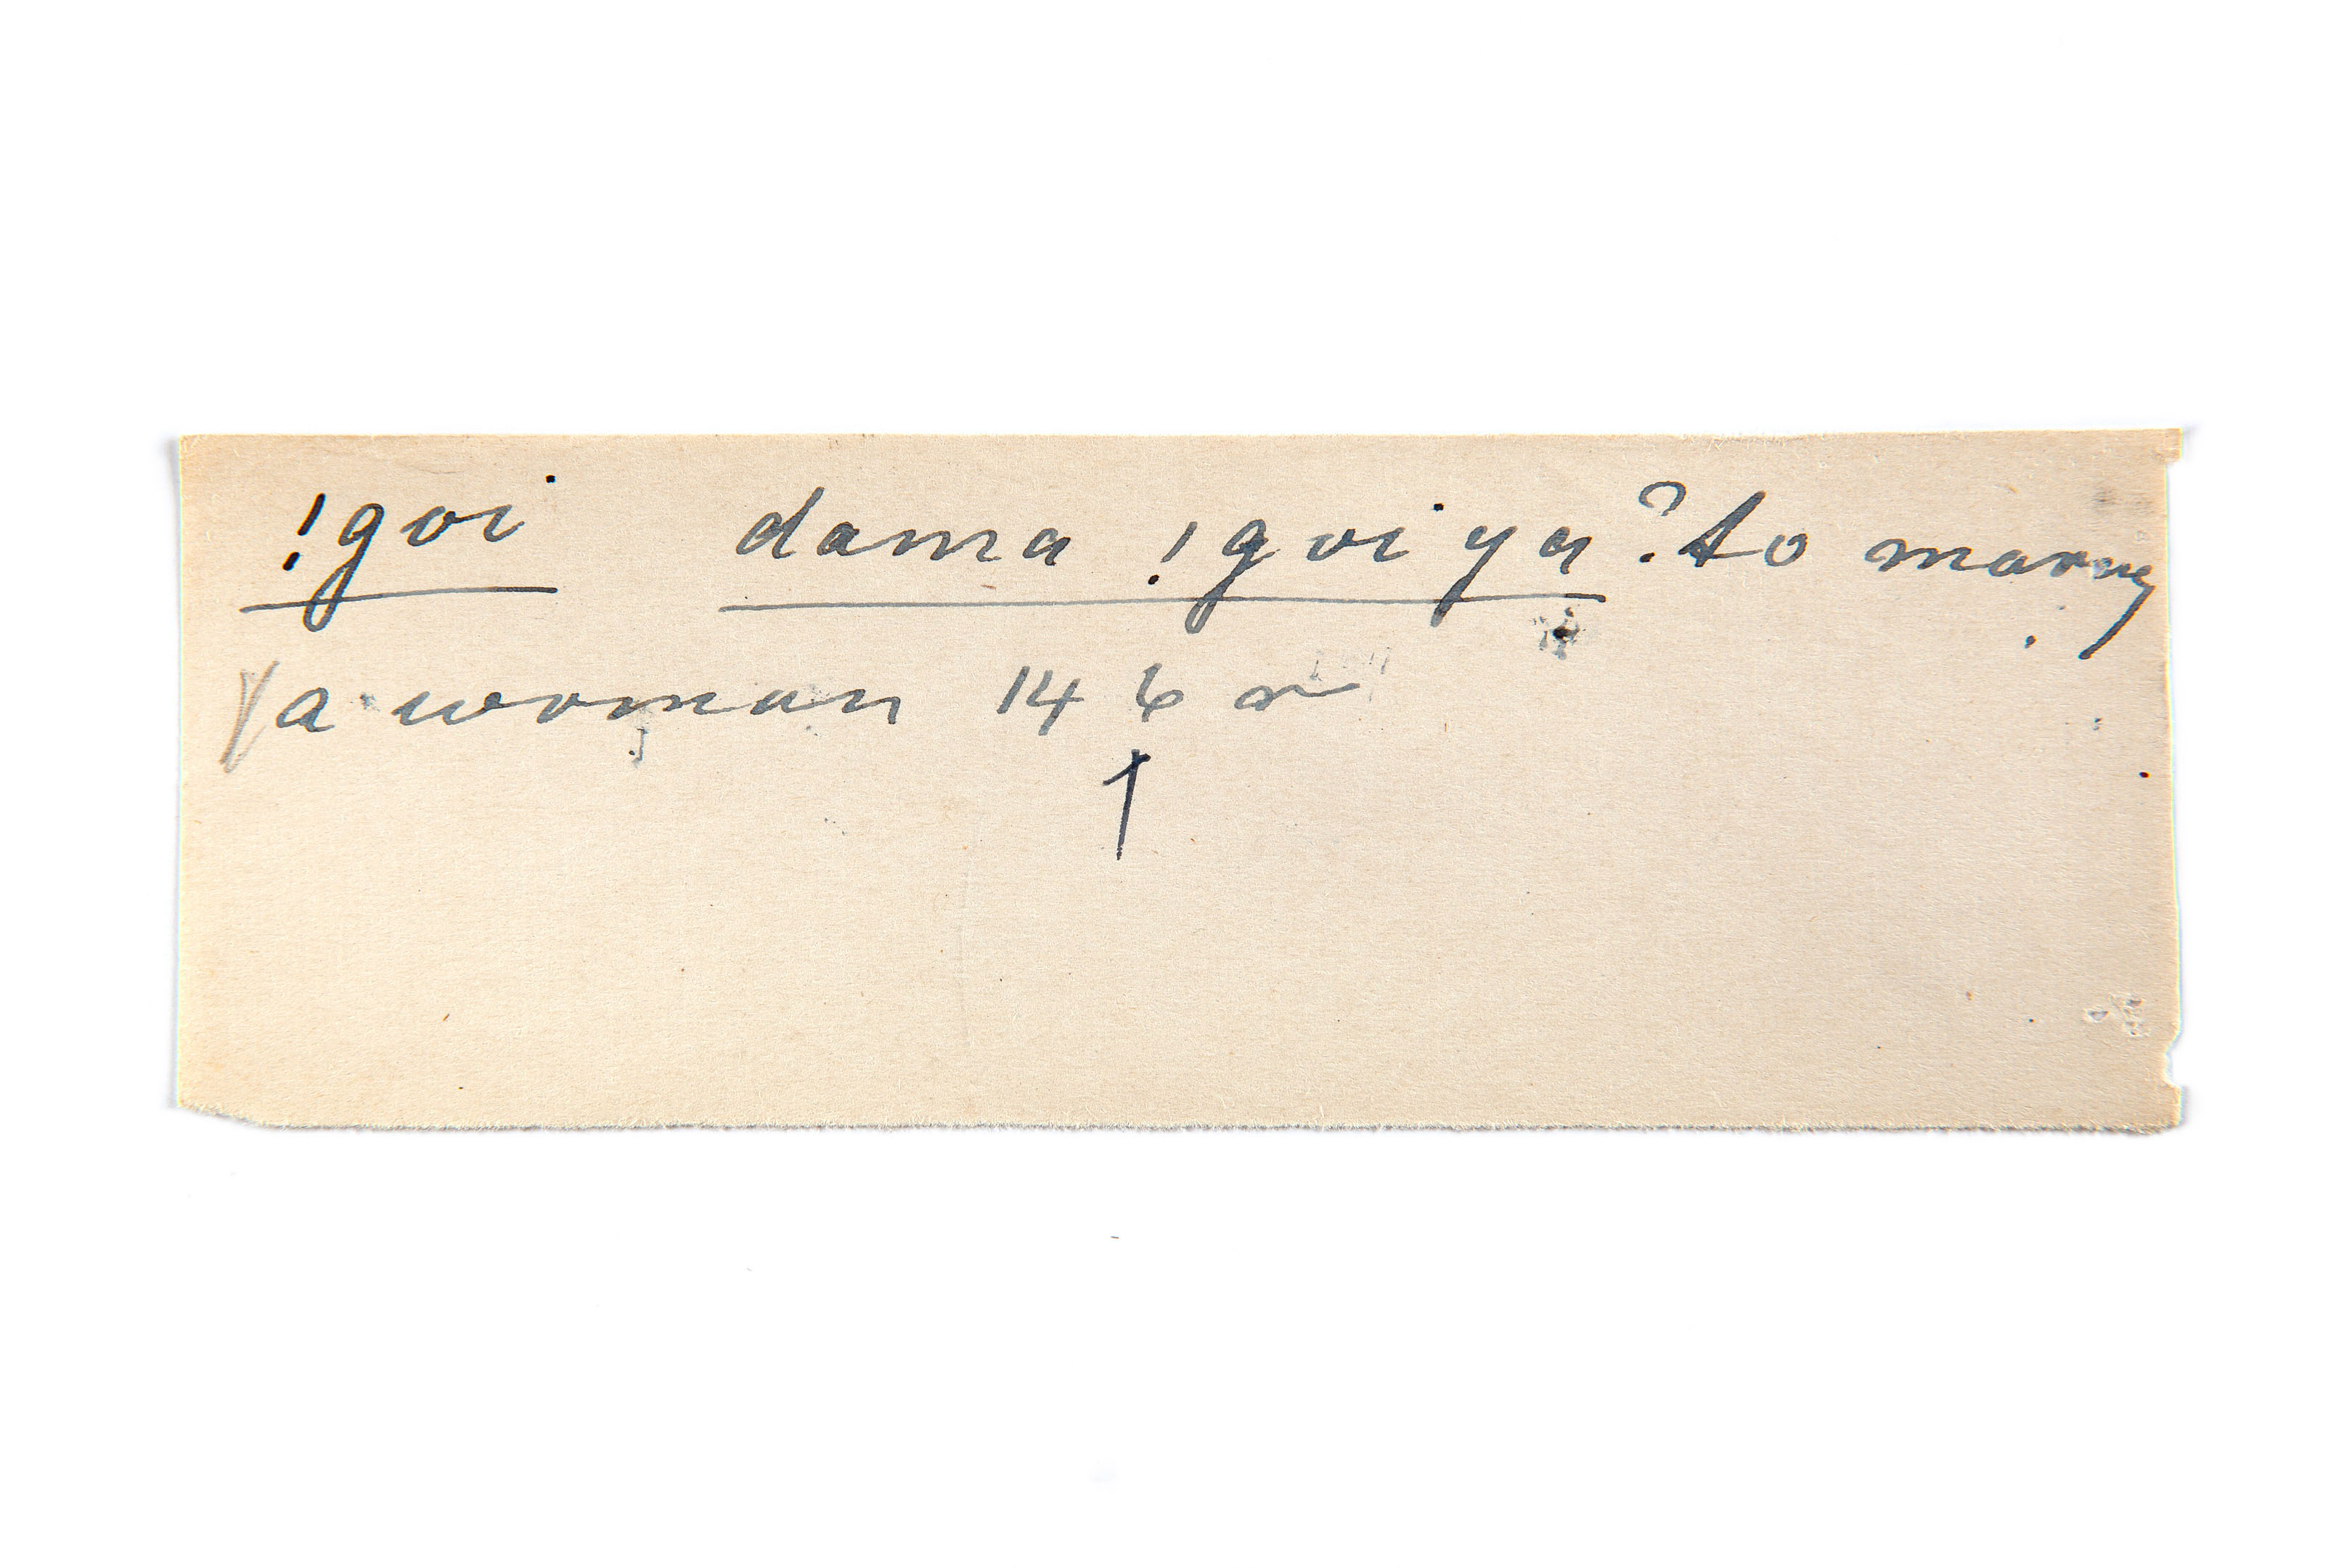 !goi dama !goi ya ? to marry
a woman 146 r